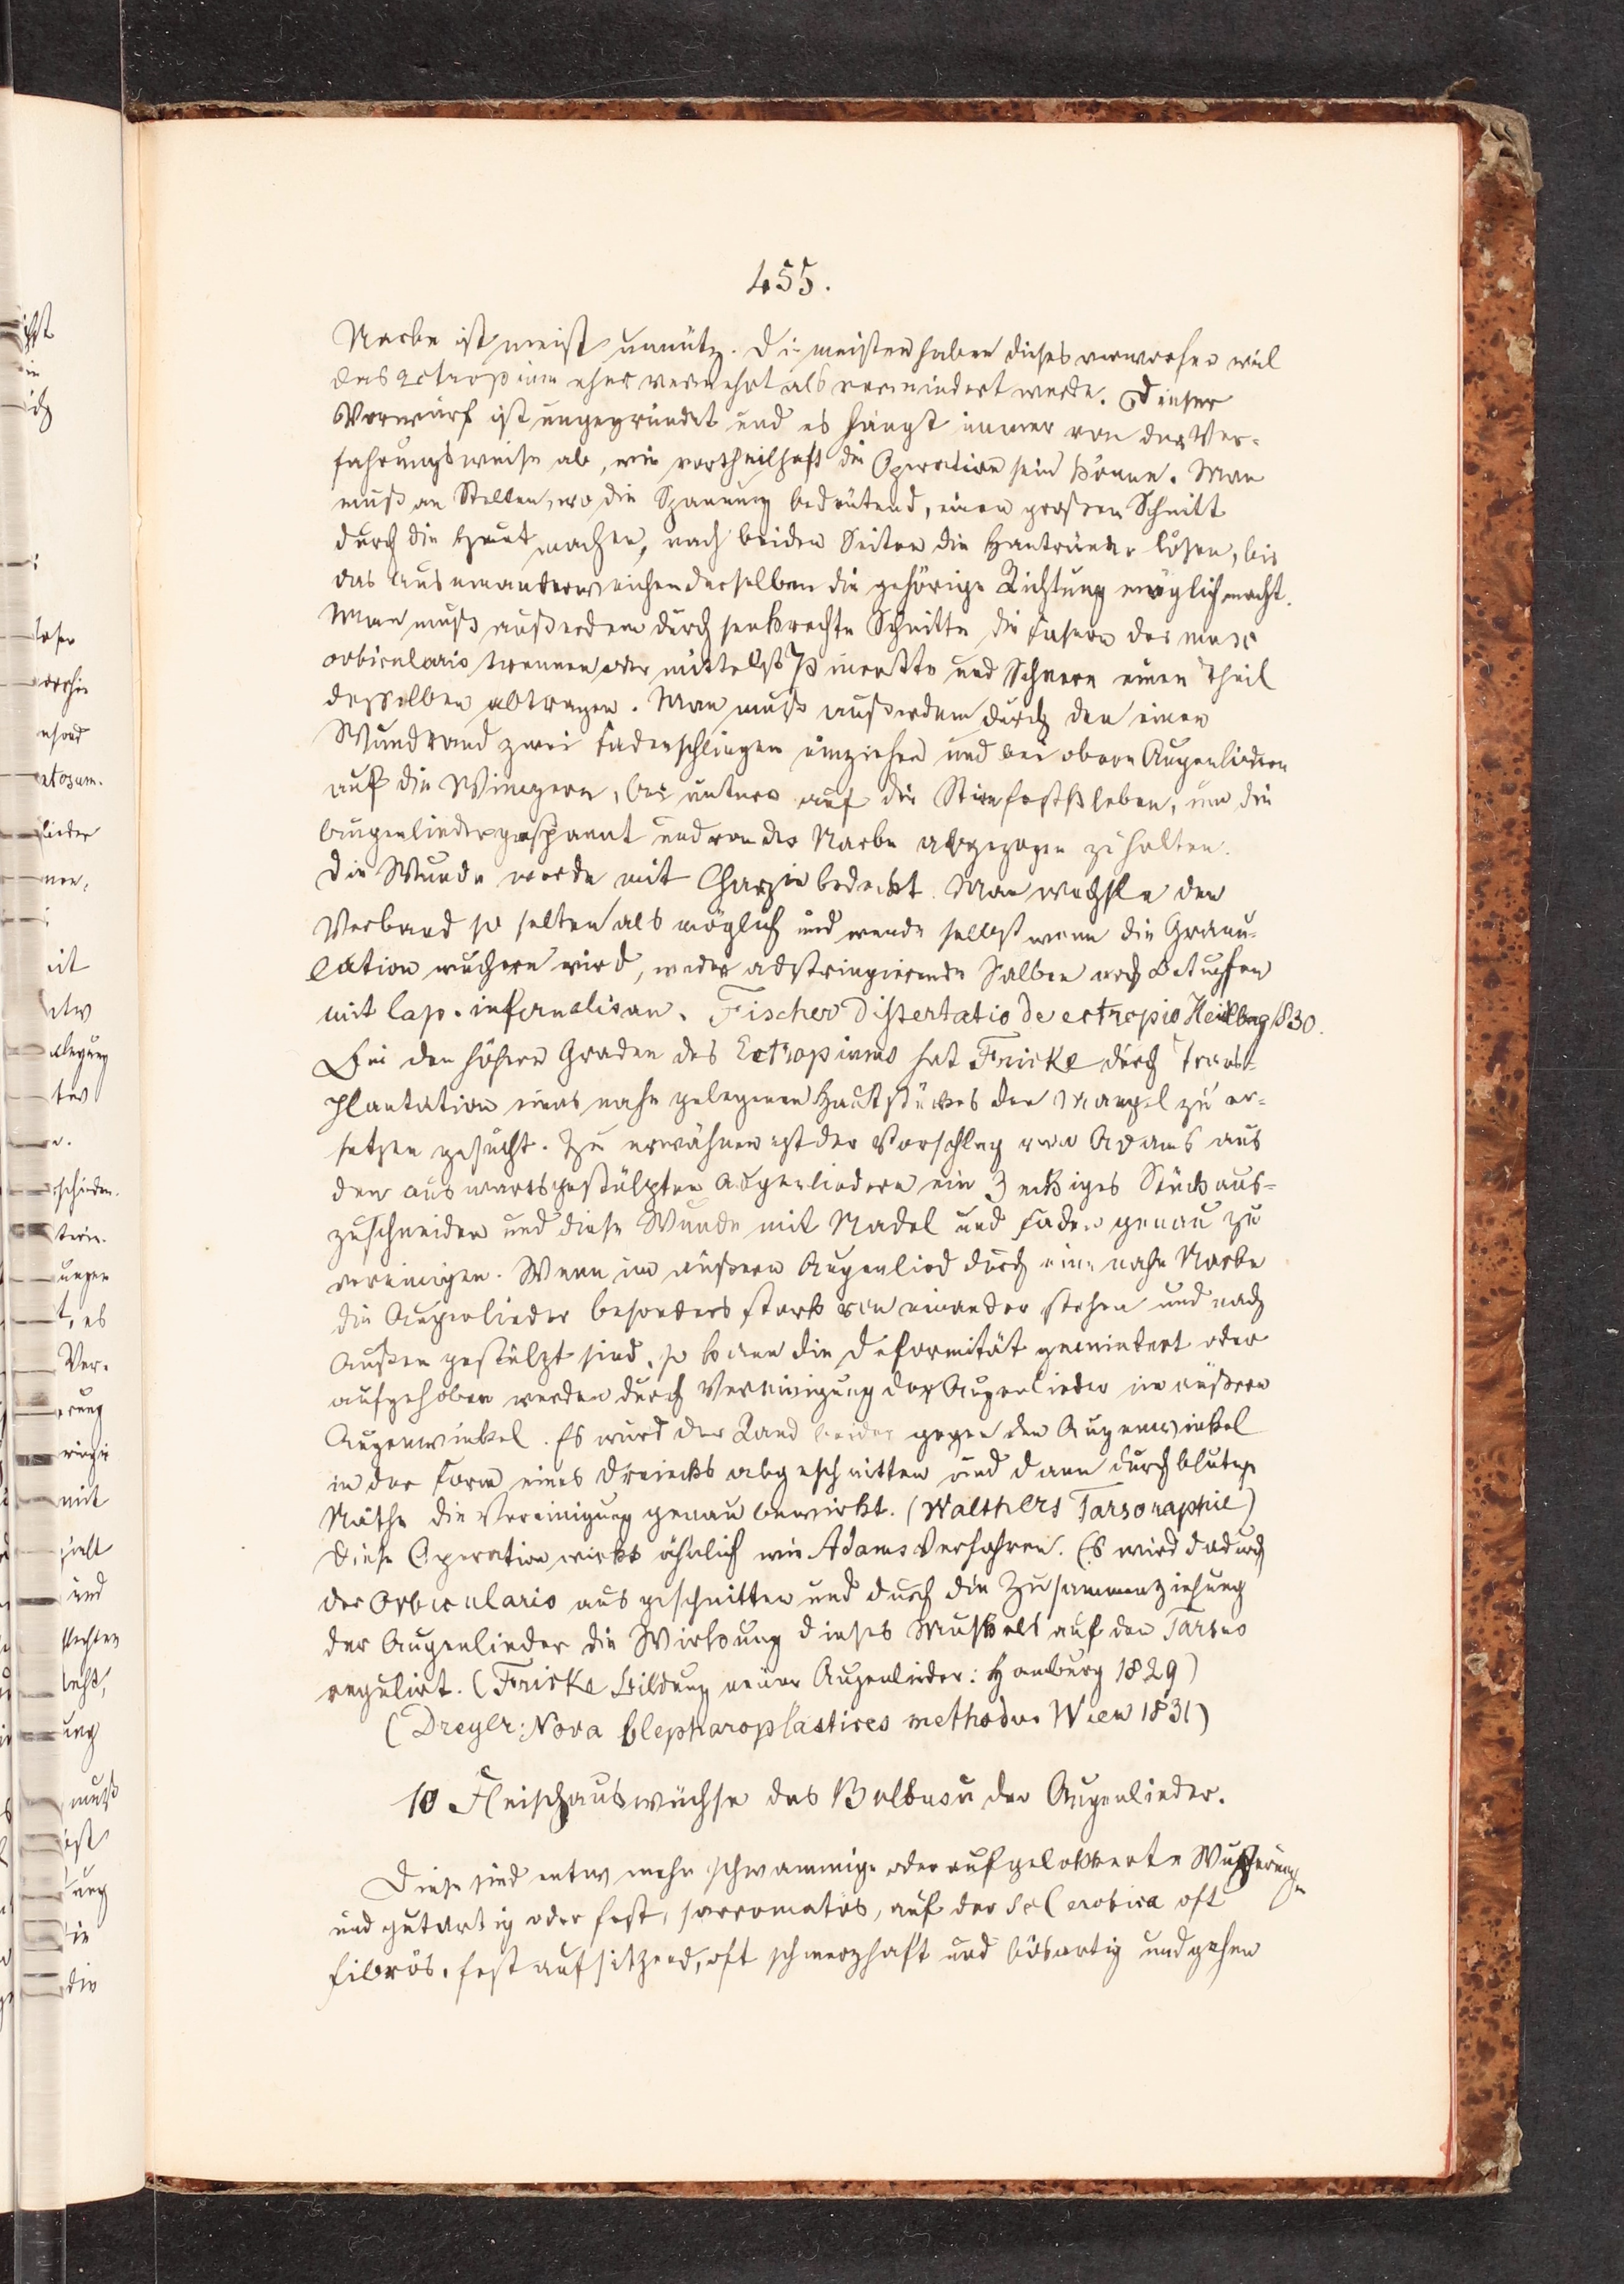 455.
Narbe ist meist unnütz. Die meisten haben dieses verworfen weil
das ectropium eher vermehrt als vermindert werde. Dieser
Vorwurf ist ungegründet und es hängt immer von der Ver=
fahrungsweise ab, wie vortheilhaft die Operation sein könne. Man
muß an Stellen, wo die Spannung bedeutend, einen großen Schnitt
durch die Haut machen, nach beiden Seiten die Hautränder lösen, bis
das Auseinanderweichen derselben die gehörige Richtung möglich macht.
Man muß außerdem durch senkrechte Schnitte die Fasern des musc
orbicularis trennen oder mittelst Pincette und Scheere einen Theil
desselben abtragen. Man muß außerdem durch den einen
Wundrand zwei Fadenschlingen einziehen und bei obern Augenliedern
auf die Wangen, bei untern auf die Stirn festkleben, um die
Augenlieder gespannt und von der Narbe abgezogen zu halten.
Die Wunde werde mit Charpie bedeckt. Man wechsle den
Verband so selten als möglich und wende selbst wenn die Granu=
lation wuchern wird, weder adstringirende Salben noch Betupfen
mit lap. infernalis an. Fischer Dissertatio de ectropio Heidlbrg 1830.
Bei den höhern Graden des Ectropiums hat Fricke durch Trans=
plantation eines nahe gelegenen Hautstückes den Mangel zu er=
setzen gesucht. Zu erwähnen ist der Vorschlag von Adams aus
den auswärtsgestülpten Augenliedern ein 3 eckiges Stück aus=
zuschneiden und diese Wunde mit Nadel und Faden genau zu
vereinigen. Wenn im äußern Augenlied durch eine nahe Narbe
die Augenlieder besonders stark von einander stehen und nach
Außen gestülpt sind, so kann die Deformität gemindert oder
aufgehoben werden durch Vereinigung der Augenlieder im äußern
Augenwinkel. Es wird der Rand beider gegen den Augenwinkel
in der Form eines Dreiecks abgeschnitten und dann durch blutige
Näthe die Vereinigung genau bewirkt. (Walthers Tarsoraphie)
Diese Operation wirkt ähnlich wie Adams Verfahren. Es wird dadurch
der Orbicularis ausgeschnitten und durch die Zusammenziehung
der Augenlieder die Wirkung dieses Muskels auf den Tarsus
regulirt. (Fricke Bildung neuer Augenlieder: Hamburg 1829)
(Dreyer: Nova blepharoplastices methodus Wien 1831)
10 Fleischauswüchse des Bulbus u der Augenlieder.
Diese sind entw mehr schwammige oder aufgelokkerte Wucherungen
und gutartig oder fest, sarcomatös, auf der Sclerotica oft
fibrös, fest aufsitzend, oft schmerzhaft und bösartig und gehen